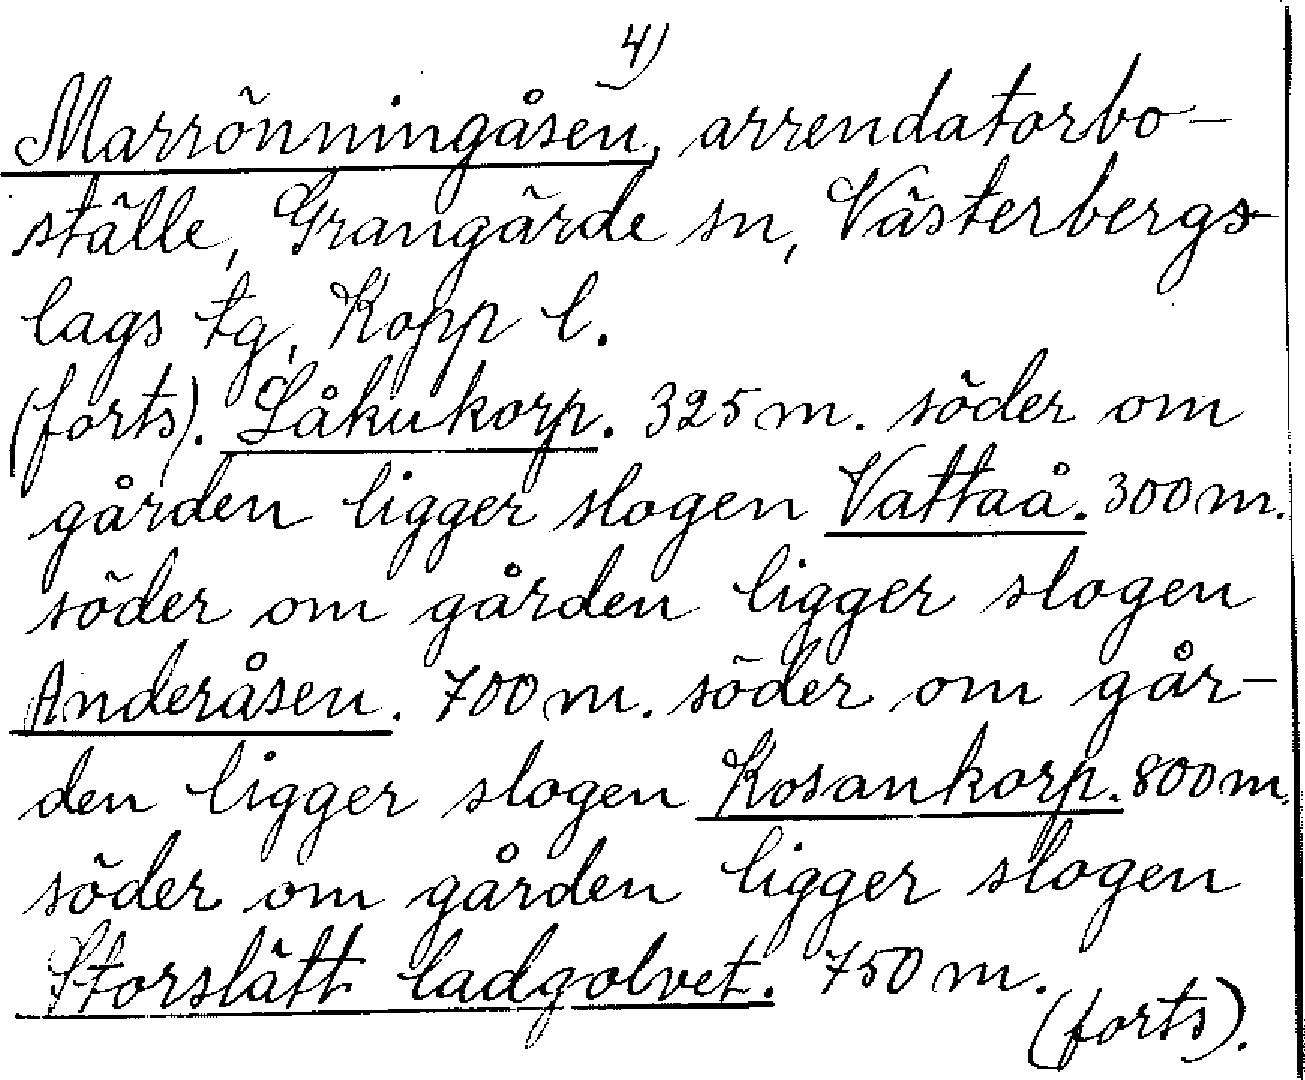 4)
Marrönningåsen, arrendatorbo-
ställe, Grangärde sn, Västerbergs-
lags tg, Kopp l.
(forts). Låkukorp. 325 m. söder om
gården ligger slogen Vattaå. 300 m.
söder om gården ligger slogen
Anderåsen. 700 m. söder om går-
den ligger slogen Kosankorp. 800 m.
söder om gården ligger slogen
Storslätt ladgolvet. 750 m.
(forts).